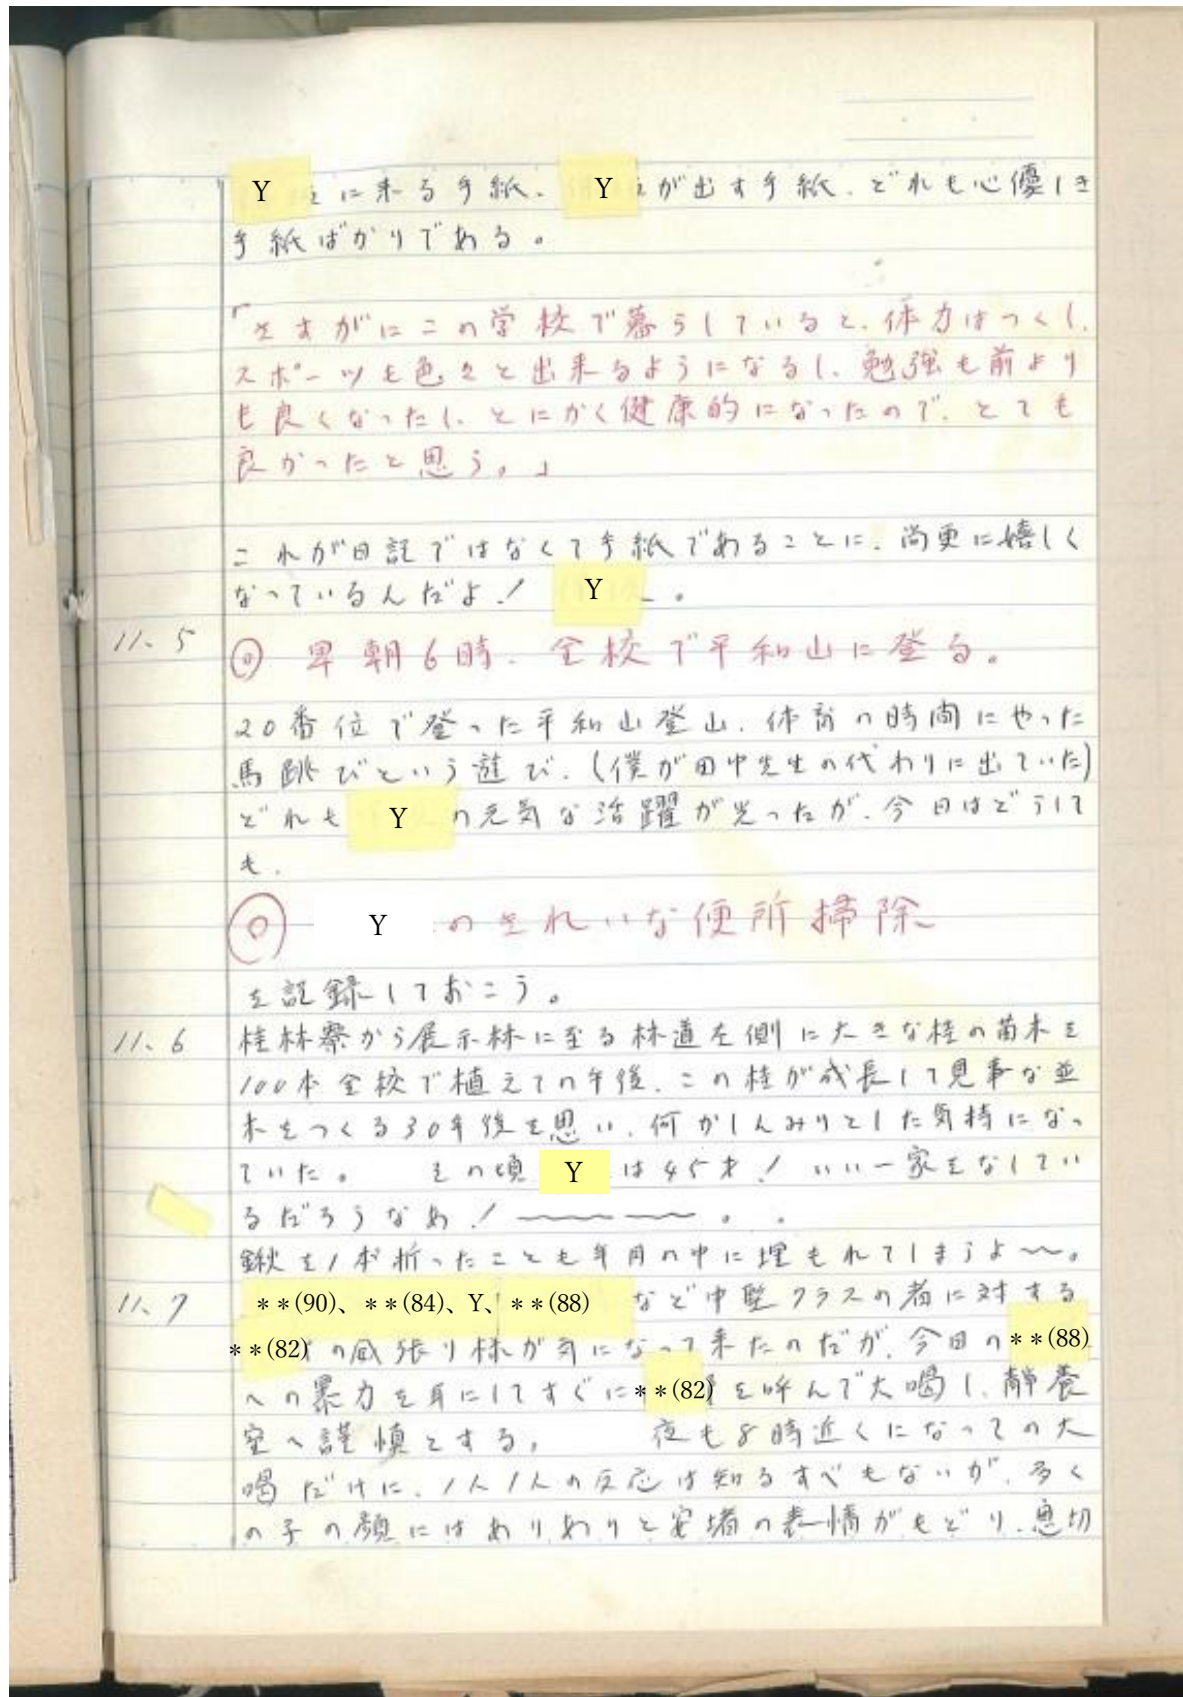 Yに来る手紙、Yが出す手紙、どれも心優しき
手紙ばかりである。
「さすがにこの学校で暮らしていると、体力はつくし、
スポーツも色々と出来るようになるし、勉強も前より
も良くなったし、とにかく健康的になったので、とても
良かったと思う。」
これが日記ではなくて手紙であることに、尚更に嬉しく
なっているんだよ! Y 。
11、5 ◎ 早朝6時、全校で平和山に登る。
20番位で登った平和山登山、体育の時間にやった
馬跳びという遊び、(僕が田中先生の代わりに出ていた)
どれも Y の元気な活躍が光ったが、今日はどうして
も、
◎ Y のきれいな便所掃除
を記録しておこう。
11、6 桂林寮から展示林に至る林道左側に大きな桂の苗木を
100本全校で植えての午後、この桂が成長して見事な並
木をつくる30年後を思い、何かしんみりとした気持になっ
ていた。 その頃 Y は45才! いい一家をなしてい
るだろうなあ! 〜〜〜。。
鍬を1本折ったことも年月の中に埋もれてしまうよ〜。
11、7 **(90)、**(84)、Y、**(88) など中堅クラスの者に対する
**(82)の威張り様が気になって来たのだが、今日の**(88)
への暴力を耳にしてすぐに**(82)を呼んで大喝し、静養
室へ謹慎とする。 夜も8時近くになっての大
喝だけに、1人1人の反応は知るすべもないが、多く
の子の顔にはありありと安堵の表情がもどり、思切